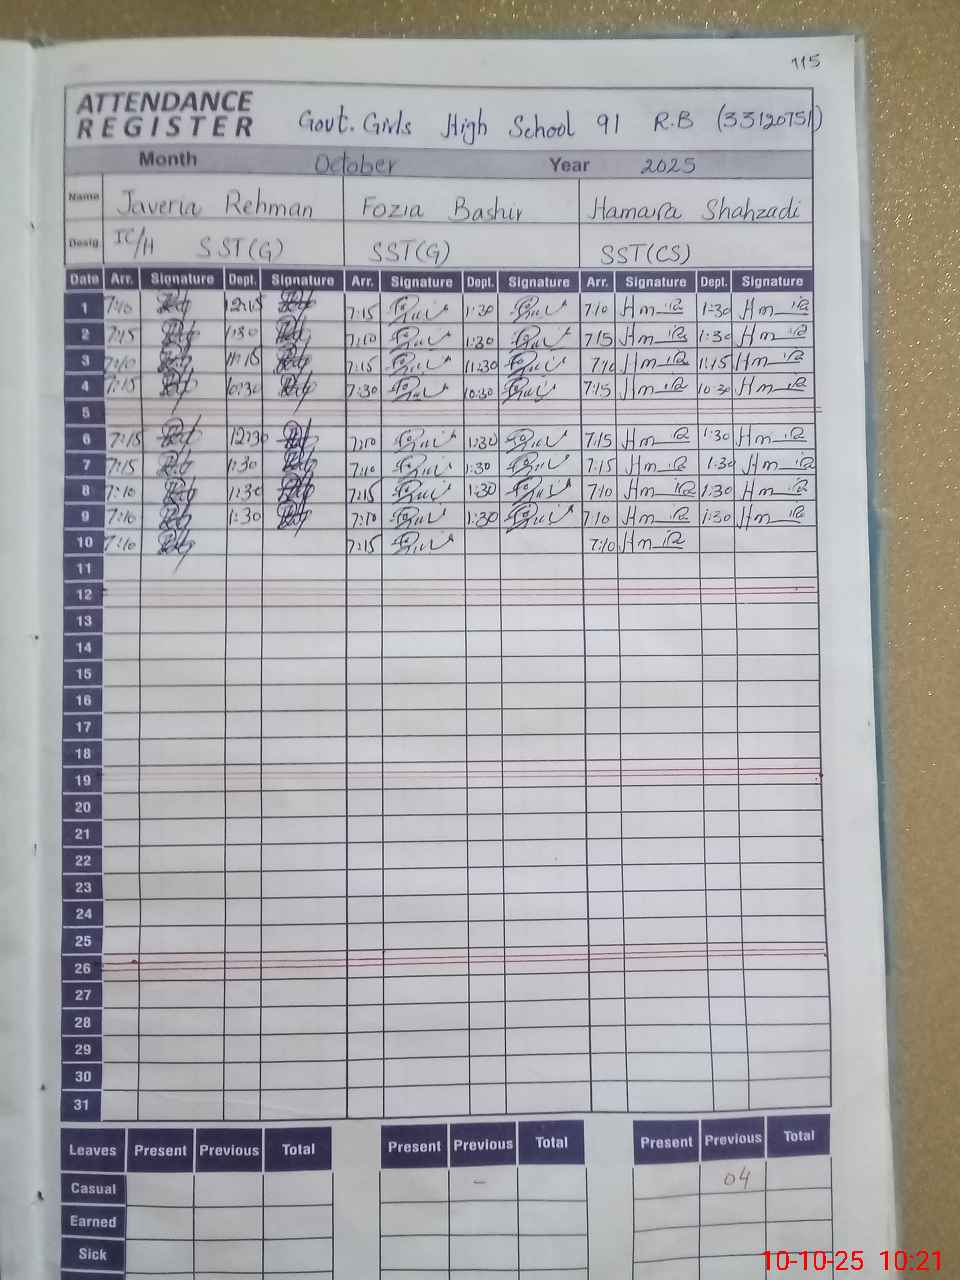 115
ATTENDANCE
REGISTER
Govt. Girls High School 91 R.B (33120751)
Month October Year 2025
Name Javeria Rehman Fozia Bashir Hamaira Shahzadi
Desig. IC/H SST(G) SST(G) SST(CS)
Date Arr. Signature Dept. Signature Arr. Signature Dept. Signature Arr. Signature Dept. Signature
1 7:10 12:15 7:15 1:30 7:10 1:30
2 7:15 1:30 7:10 1:30 7:15 1:30
3 7:10 11:15 7:15 11:30 7:10 11:15
4 7:15 10:30 7:30 10:30 7:15 10:30
5
6 7:15 12:30 7:10 1:30 7:15 1:30
7 7:15 1:30 7:10 1:30 7:15 1:30
8 7:10 1:30 7:15 1:30 7:10 1:30
9 7:10 1:30 7:10 1:30 7:10 1:30
10 7:10 7:15 7:10
11
12
13
14
15
16
17
18
19
20
21
22
23
24
25
26
27
28
29
30
31
Leaves Present Previous Total Present Previous Total Present Previous Total
Casual - 04
Earned
Sick
10-10-25 10:21